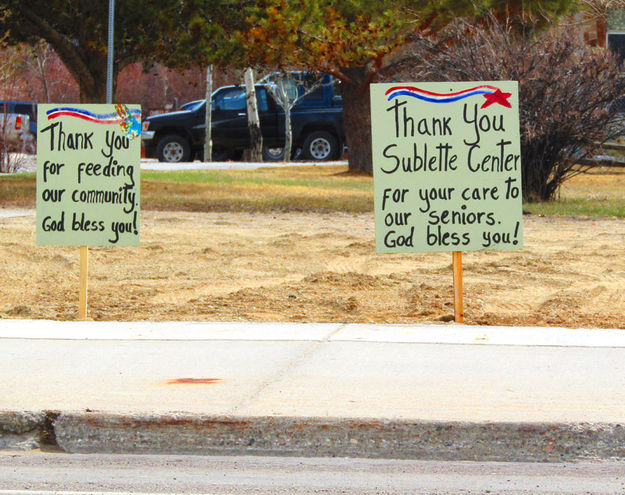 Thank you
for feeding
our community.
God bless you!
Thank You
Sublette Center
for your care to
our seniors.
God bless you!